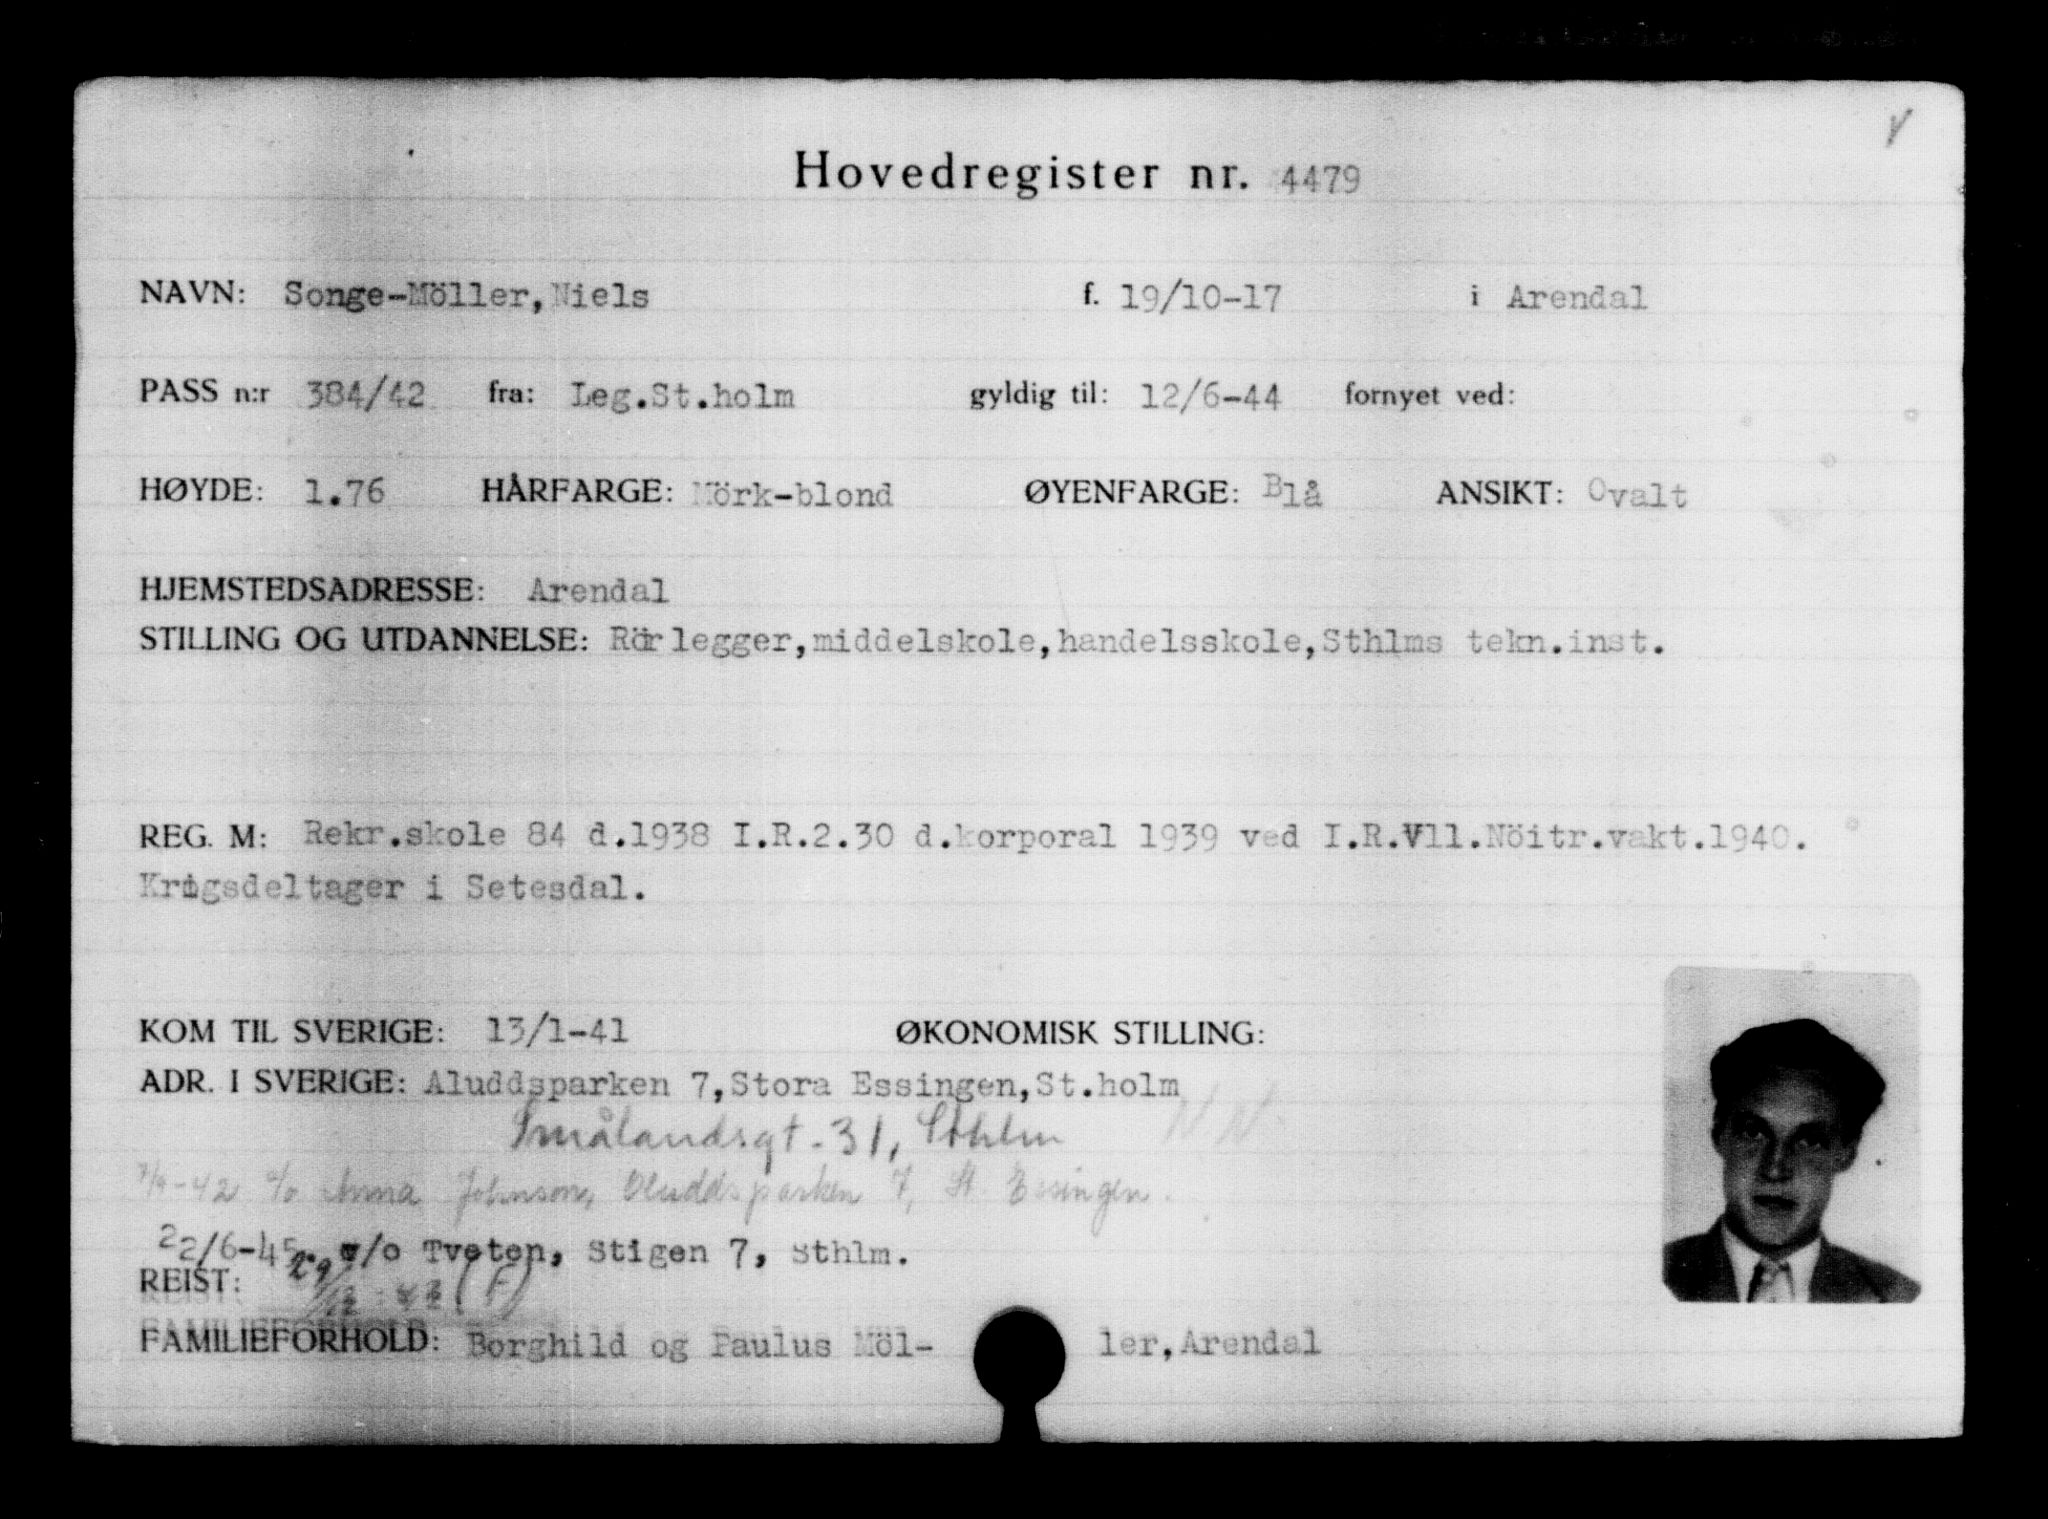 Hovedregister nr. 4479
NAVN: Songe-Möller,Niels f. 19/10-17 i Arendal
PASS n:r 384/42 fra: Leg.St.holm gyldig til: 12/6-44 fornyet ved:
HØYDE: 1.76 HÅRFARGE: Mörk-blond ØYENFARGE: Blå ANSIKT: Ovalt
HJEMSTEDSADRESSE: Arendal
STILLING OG UTDANNELSE: Rörlegger,middelskole,handelsskole,Sthlms tekn.inst.
REG. M: Rekr.skole 84 d.1938 I.R.2.30 d.korporal 1939 ved I.R.Vll.Nöitr.vakt.1940.
Krigsdeltager i Setesdal.
KOM TIL SVERIGE: 13/1-41 ØKONOMISK STILLING:
ADR. I SVERIGE: Aluddsparken 7,Stora Essingen,St.holm
Smålandsgt. 31, Sthlm
c/o Anna Johnson, Oluddsparken 7, St. Essingen.
22/6-45. c/o Tveten, Stigen 7, Sthlm.
REIST:
FAMILIEFORHOLD: Borghild og Paulus Möl- ler,Arendal